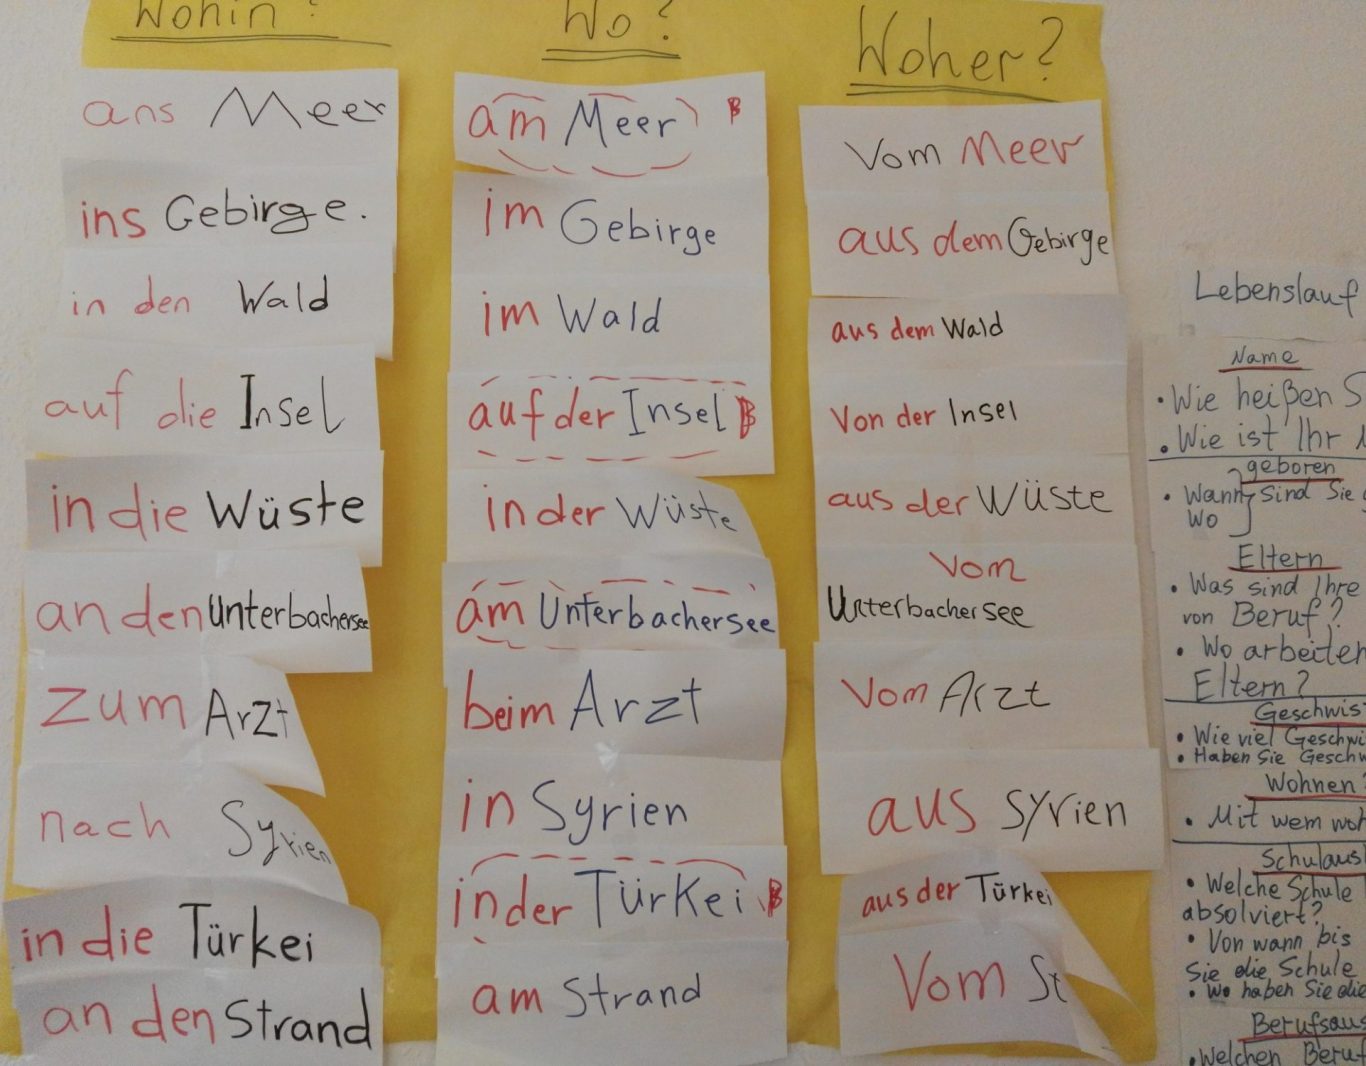 Wohin?
ans Meer
ins Gebirge.
in den Wald
auf die Insel
in die Wüste
an den Unterbachersee
zum Arzt
nach Syrien
in die Türkei
an den Strand
Wo?
am Meer B
im Gebirge
im Wald
auf der Insel B
in der Wüste
am Unterbachersee
beim Arzt
in Syrien
in der Türkei B
am Strand
Woher?
Vom Meer
aus dem Gebirge
aus dem Wald
Von der Insel
aus der Wüste
Vom
Unterbachersee
Vom Arzt
aus Syrien
aus der Türkei
Vom St
Lebenslauf
Name
• Wie heißen S
• Wie ist Ihr
geboren
• Wann sind Sie
Wo
Eltern
• Was sind Ihre
von Beruf?
• Wo arbeiten
Eltern?
Geschwis
• Wie viel Geschwi
• Haben Sie Geschw
Wohnen?
• Mit wem woh
Schulaus
• Welche Schule
absolviert?
• Von wann bis
Sie die Schule
• Wo haben Sie die
Berufsaus
• Welchen Beruf